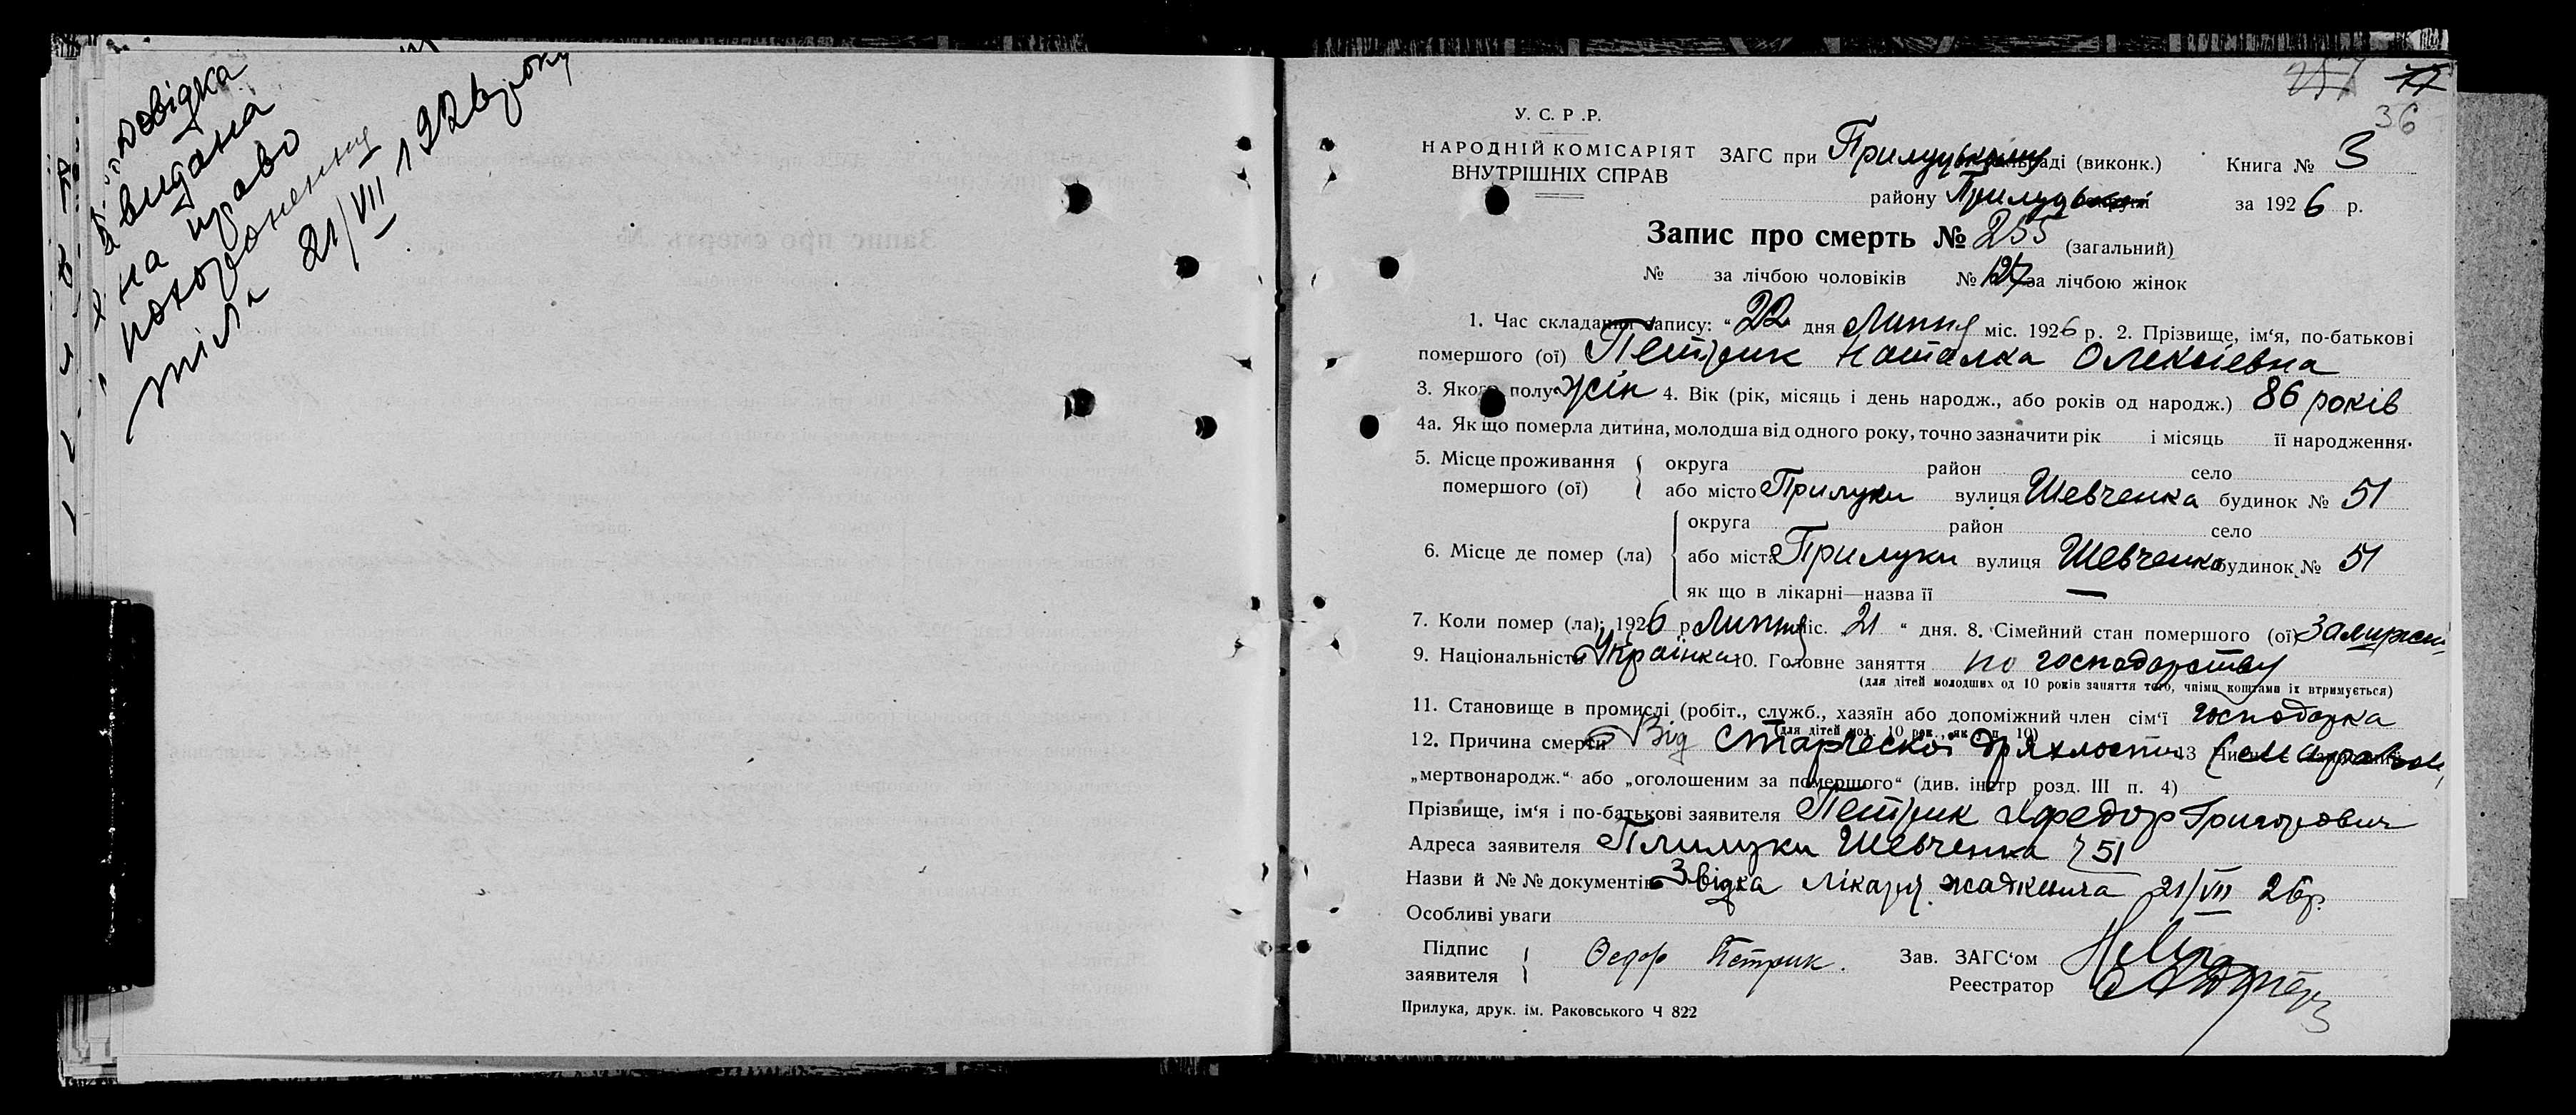 довідка
видана
на право
похоронення
тіла 21/VII 1926 року
257 77
36
У. С. Р. Р.
НАРОДНІЙ КОМІСАРІЯТ
ВНУТРІШНІХ СПРАВ
ЗАГС при Прилуцькому раді (виконк.) Книга № 3
району Прилуцької округи за 1926 р.
Запис про смерть № 255 (загальний)
№ за лічбою чоловіків № 127 за лічбою жінок
1. Час складання запису: "22" дня Липня міс. 1926 р. 2. Прізвище, ім'я, по-батькові
помершого (ої) Петрик Наталка Олексіевна
3. Якого полу жін 4. Вік (рік, місяць і день народж., або років од народж.) 86 років
4а. Як що померла дитина, молодша від одного року, точно зазначити рік і місяць її народження.
5. Місце проживання помершого (ої) { округа район село
або місто Прилуки вулиця Шевченка будинок № 51
6. Місце де помер (ла) { округа район село
або міста Прилуки вулиця Шевченка будинок № 51
як що в лікарні—назва її —
7. Коли помер (ла): 1926 р. Липня міс. 21 " дня. 8. Сімейний стан помершого (ої) Замужем
9. Національність Українка 10. Головне заняття по господарству
(для дітей молодших од 10 років заняття того, чиїми коштами їх втримується)
11. Становище в промислі (робіт., служб., хазяїн або допоміжний член сім'ї господарка
(для дітей мол. 10 рок., як і п. 10)
12. Причина смерти Від старческої дряхлости 13
„мертвонародж." або „оголошеним за помершого" (див. інстр розд. III п. 4)
Прізвище, ім'я і по-батькові заявителя Петрик Федор Григорович
Адреса заявителя Прилуки Шевченка 51
Назви й №№ документів Звідка лікаря 21/VII 26р.
Особливі уваги
Підпис заявителя } Федор Петрик. Зав. ЗАГС'ом
Реестратор
Прилука, друк. ім. Раковського Ч 822